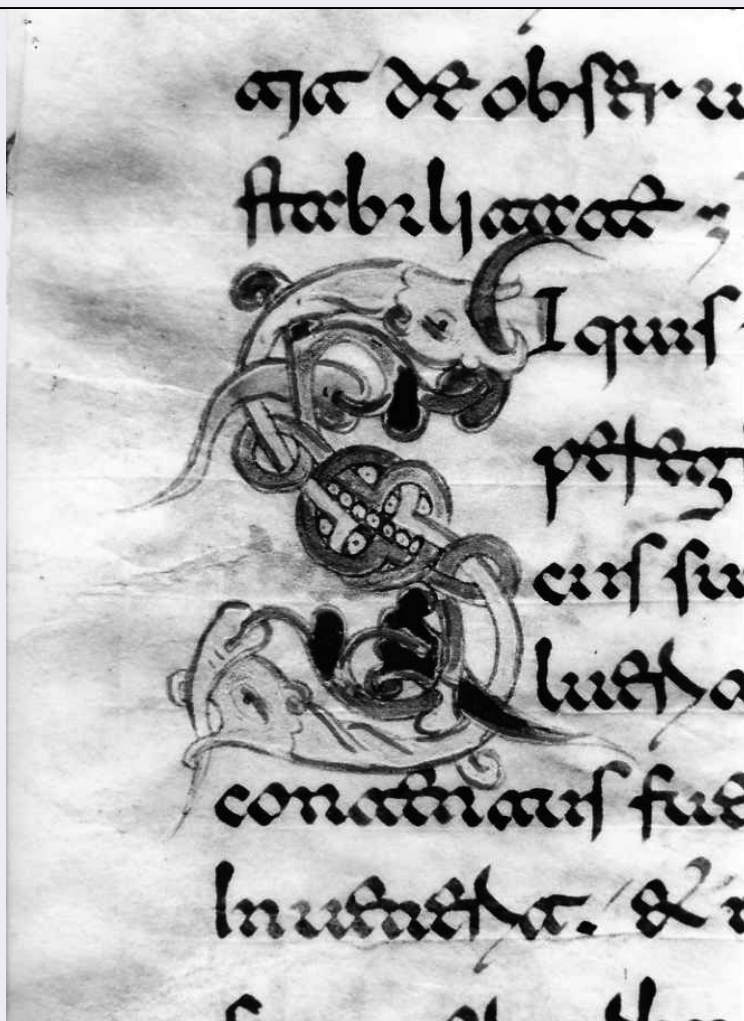 tit de obseru
stabilitate ;
SI quis
pereg
ciis su
luerit
contentus fue
Inuenerit. &